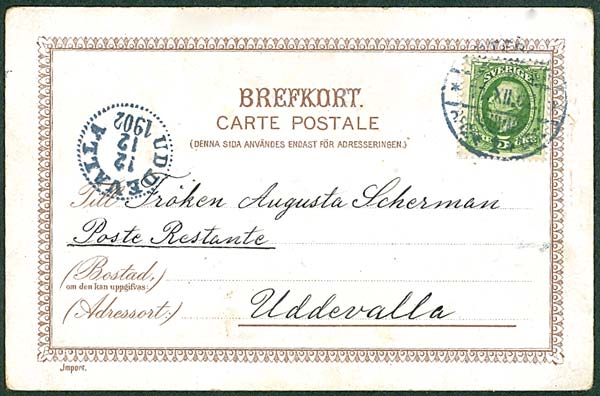 SVERIGE
5
BREFKORT.
CARTE POSTALE
(DENNA SIDA ANVÄNDES ENDAST FÖR ADRESSERINGEN.)
UDDEVALLA
12
12
1902
Till Fröken Augusta Scherman
Poste Restante
(Bostad,
om den kan uppgifvas:)
(Adressort:) Uddevalla
Import.